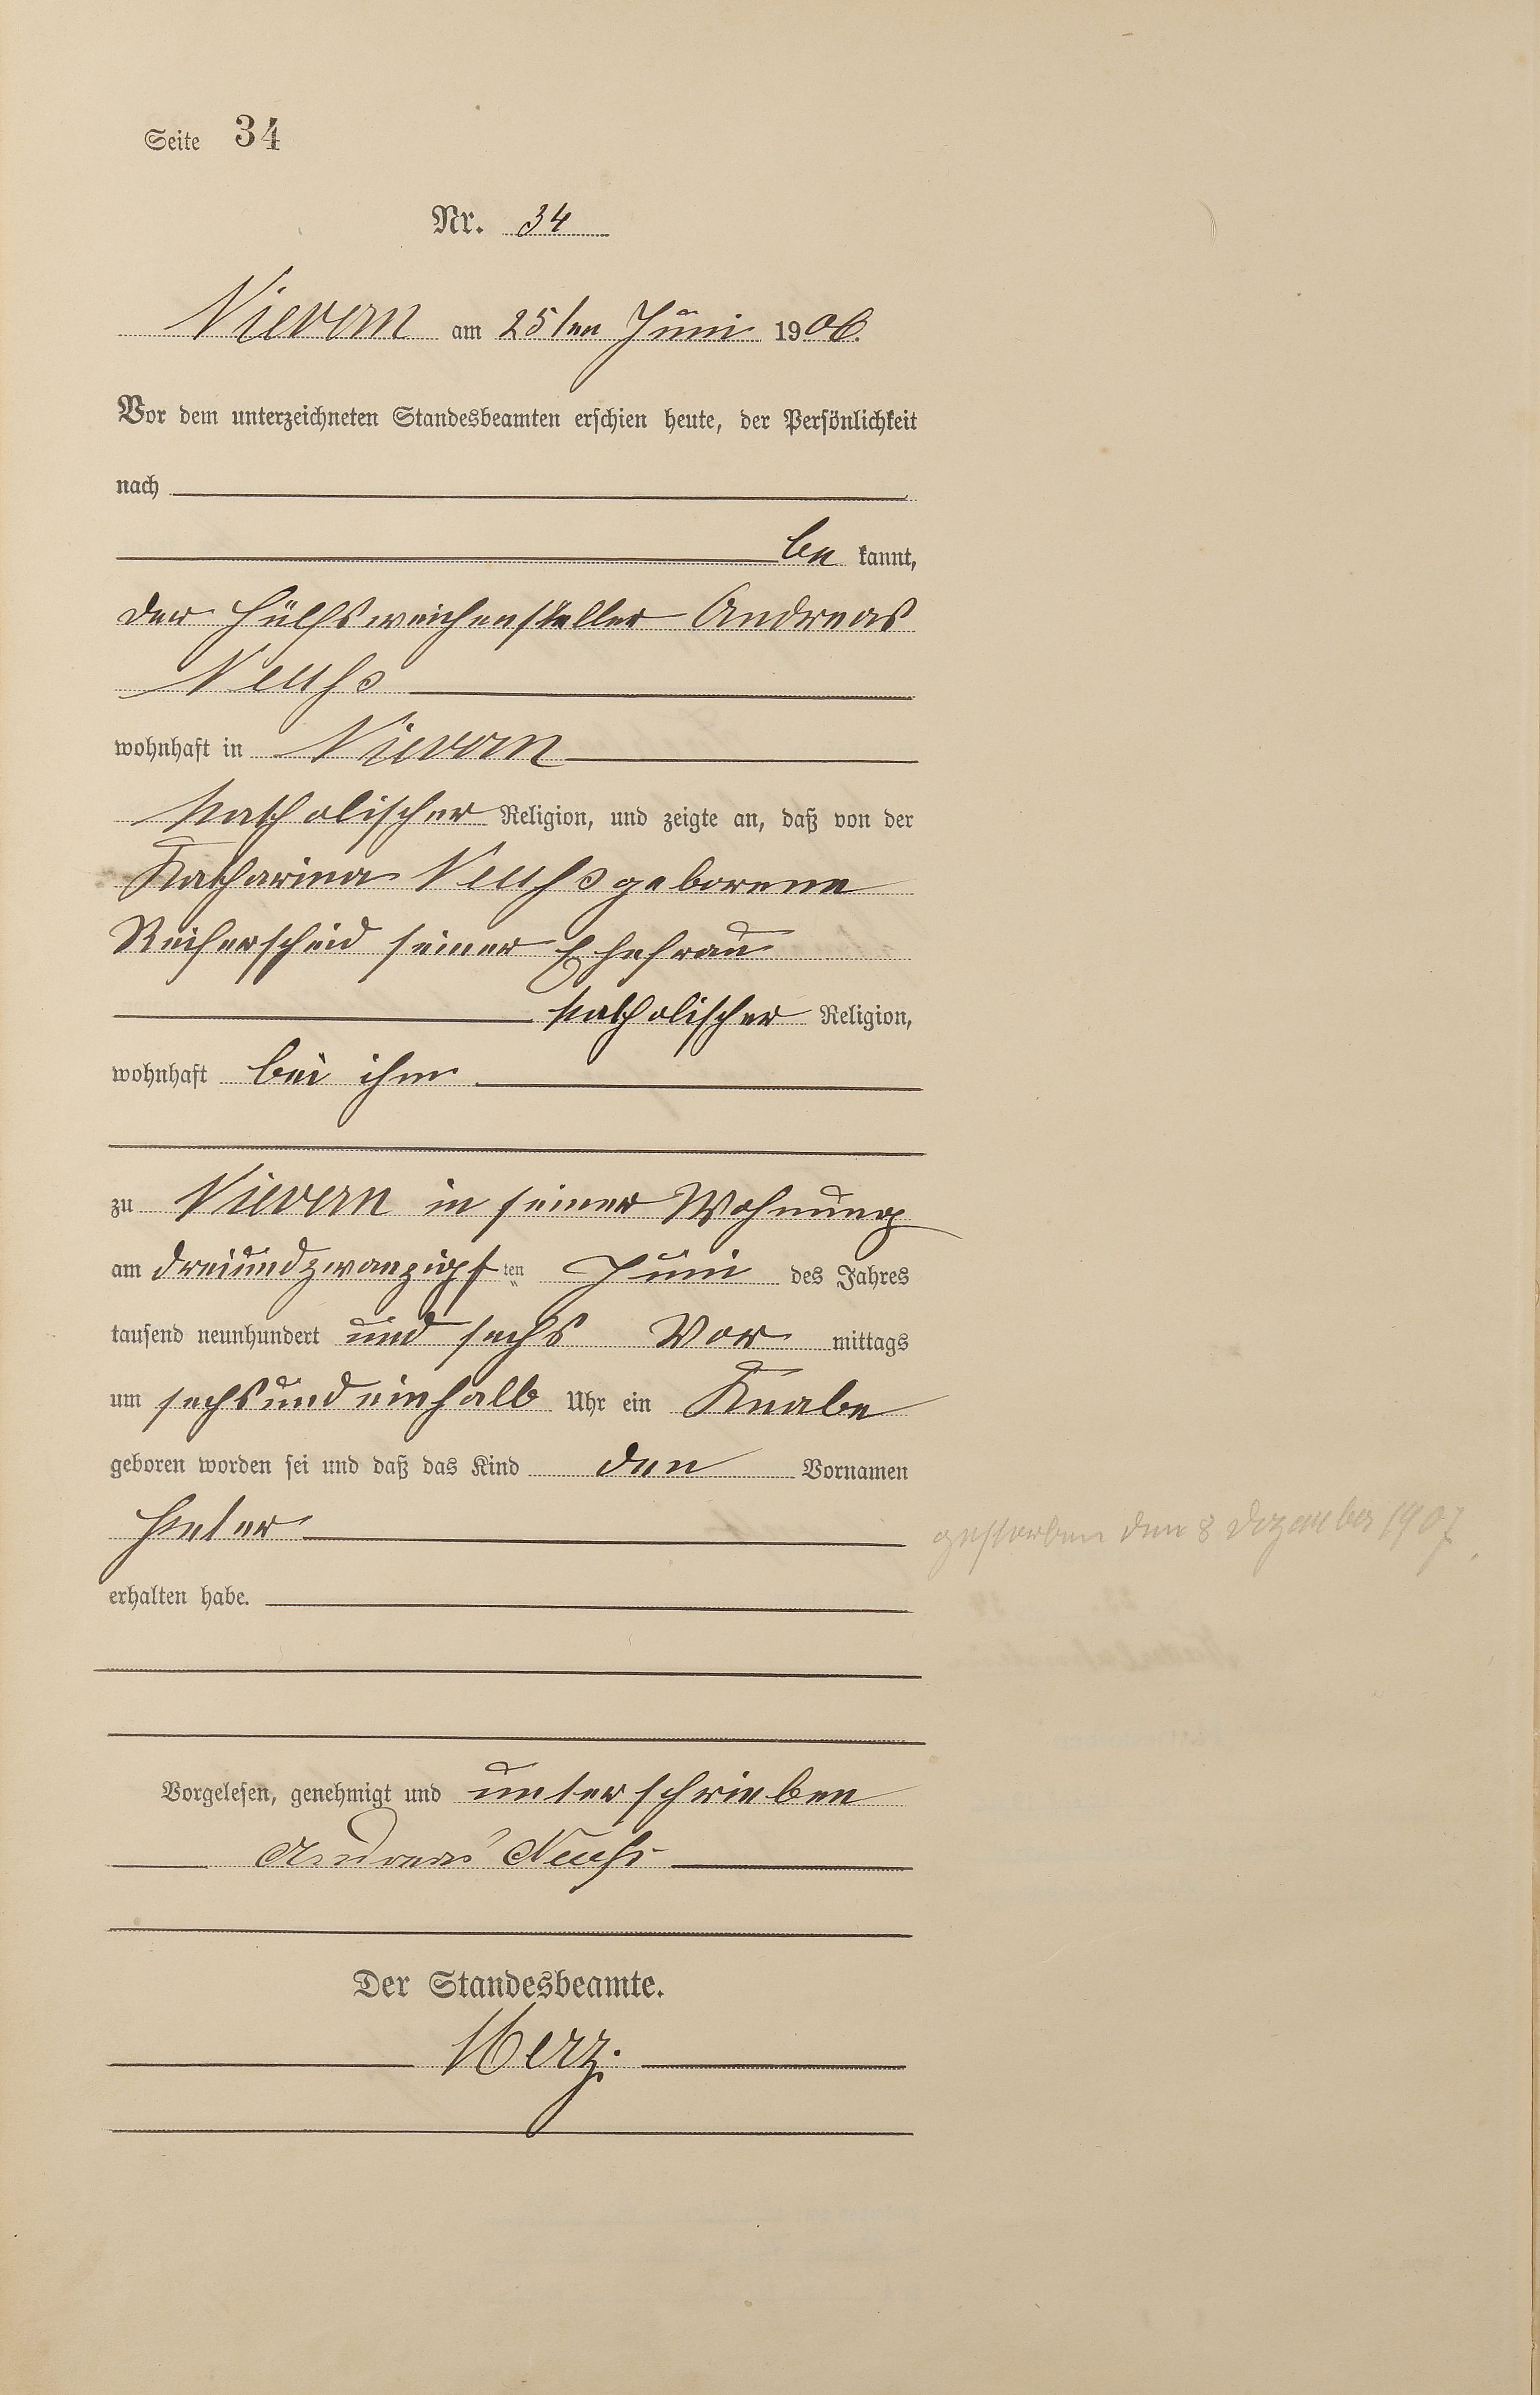 Seite 34
Nr. 34
Nievern am 25ten Juni 1906.
Vor dem unterzeichneten Standesbeamten erschien heute, der Persönlichkeit
nach
be kannt,
der Hülfsweichensteller Andreas
Neuhs
wohnhaft in Nievern
katholischer Religion, und zeigte an, daß von der
Katharina Neuhs geborene
Reiherscheid seiner Ehefrau
katholischer Religion,
wohnhaft bei ihm
zu Nievern in seiner Wohnung
am dreiundzwanzigsten Juni des Jahres
tausend neunhundert und sechs Vor mittags
um sechsundeinhalb Uhr ein Knabe
geboren worden sei und daß das Kind den Vornamen
Peter
gestorben den 8 Dezember 1907.
erhalten habe.
Vorgelesen, genehmigt und unterschrieben
Andreas Neuhs
Der Standesbeamte.
Merz.